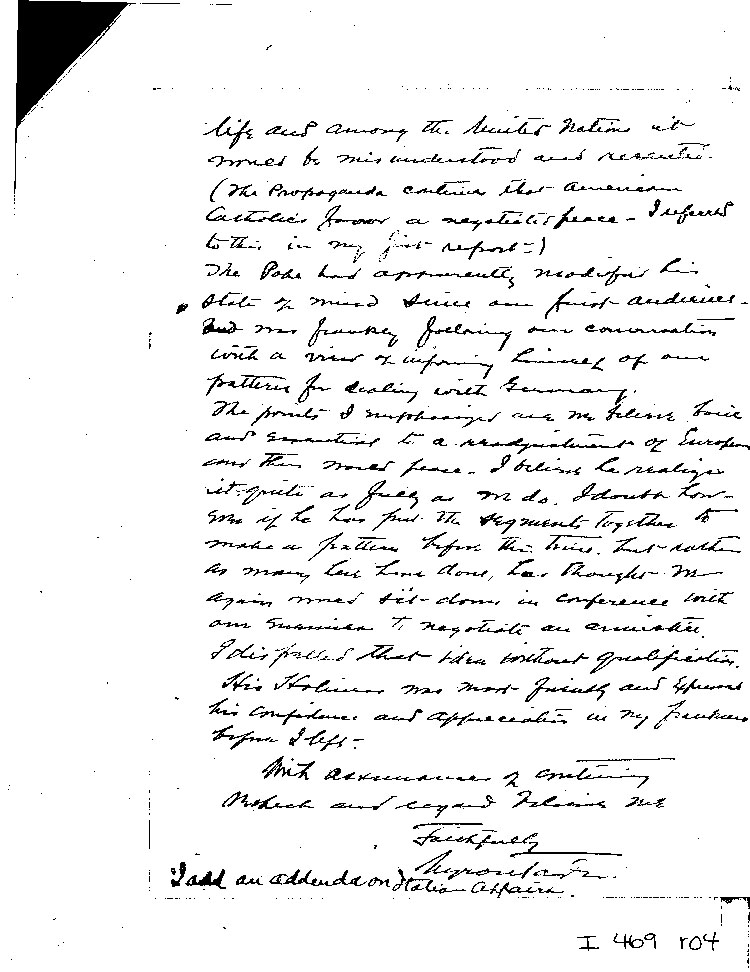 life and among the United Nations it
would be misunderstood and resented.
(The Propaganda continues that American
Catholics favor a negotiated peace - I referred
to this in my first report -)
The Pope had apparently modified his
state of mind since our first audience -
and was frankly following our conversation
with a view of informing himself of our
pattern for dealing with Germany.
The points I emphasized are we believe basic
and essential to a readjustment of European
and thus world peace - I believe he realizes
it quite as fully as we do. I doubt how-
ever if he has put the segments together to
make a pattern before this time, but rather
as many here have done, has thought we
again would sit-down in conference with
our enemies to negotiate an armistice.
I dispelled that idea without qualification.
His Holiness was most friendly and expressed
his confidence and appreciation in my frankness
before I left -
With assurances of continuing
respect and regard believe me
Faithfully
Myron Taylor
I add an addenda on Italian Affairs.
I 469 r04